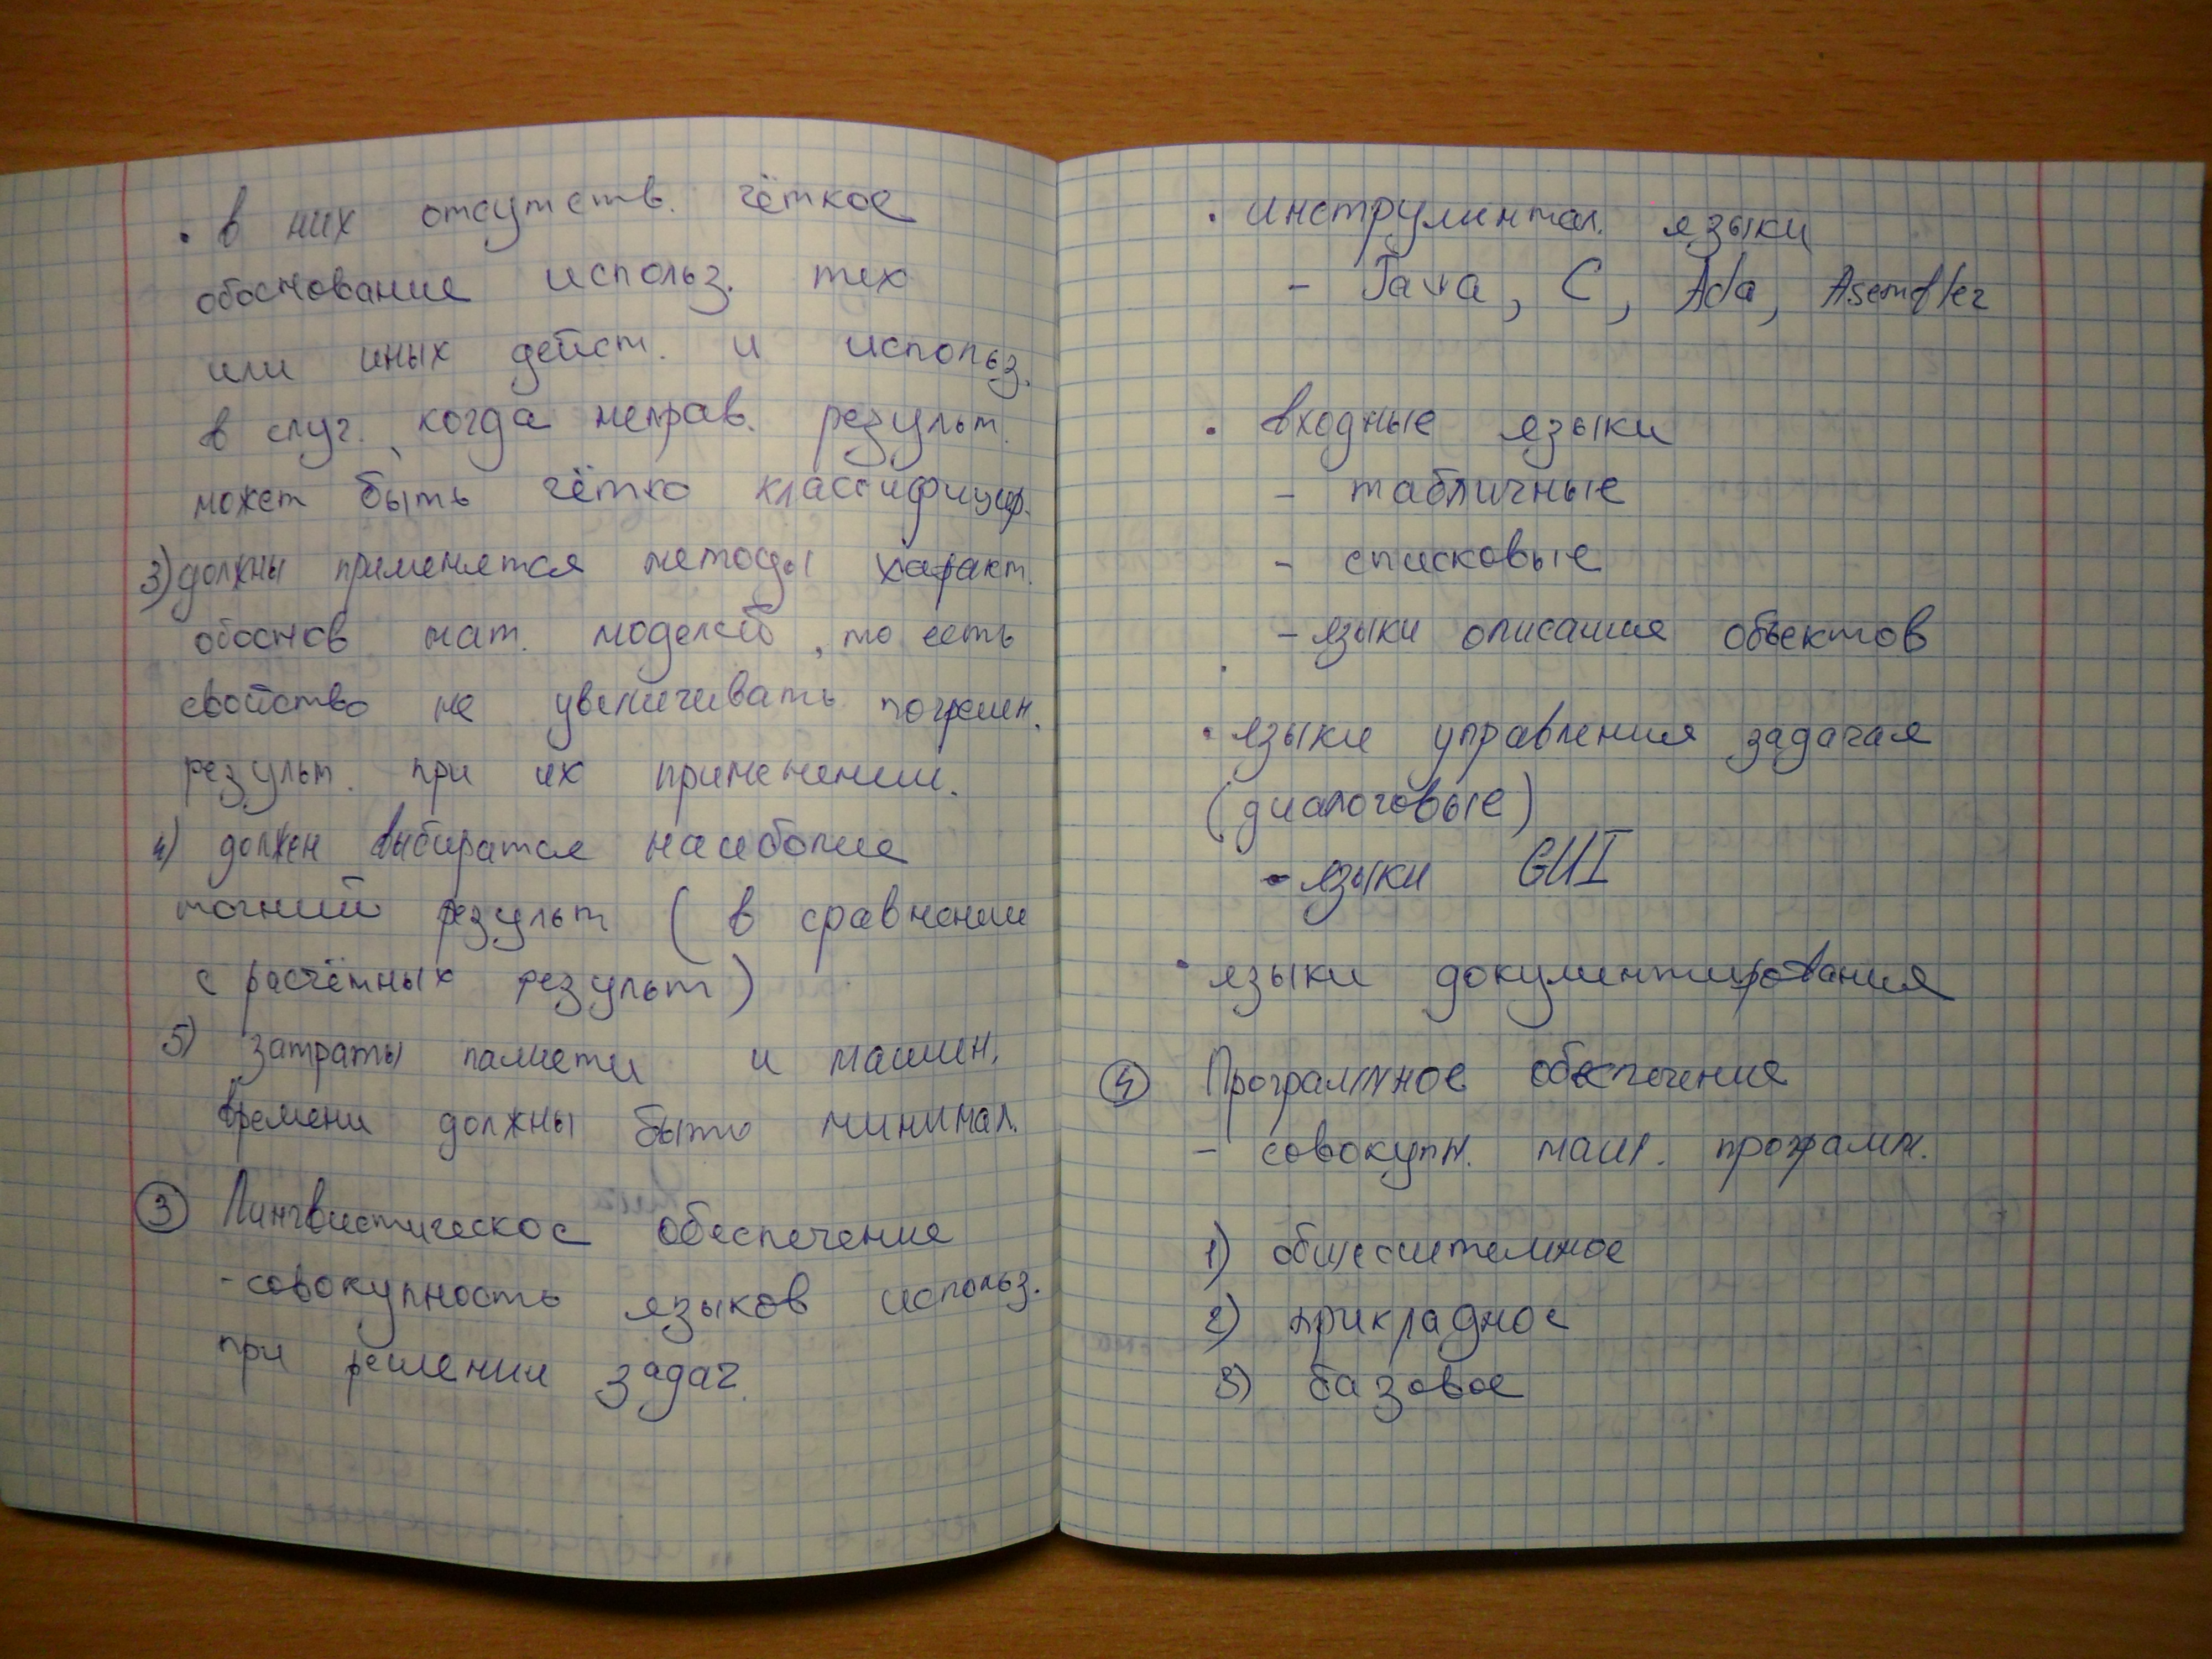 • в них отсутств. чёткое
обоснование использ. тех
или иных дейст. и использ.
в случ., когда неправ. результ.
может быть чётко классифицир.
3) должны применятся методы характ.
обоснов мат. моделей, то есть
свойство не увеличивать погрешн.
результ. при их применении.
4) должен выбиратся наиболие
точний результ (в сравнении
с расчётных результ)
5) затраты памяти и машин.
времени должны быть минимал.
③ Лингвистическое обеспечение
- совокупность языков использ.
при решении задач.
• инструментал. языки
- Java, C, Ada, Asembler
• входные языки
- табличные
- списковые
- языки описания объектов
• языки управления задачая
(диалоговые)
- языки GUI
• языки документирования
④ Программное обеспечение
- совокупн. маш. программ.
1) общесистемное
2) прикладное
3) базовое